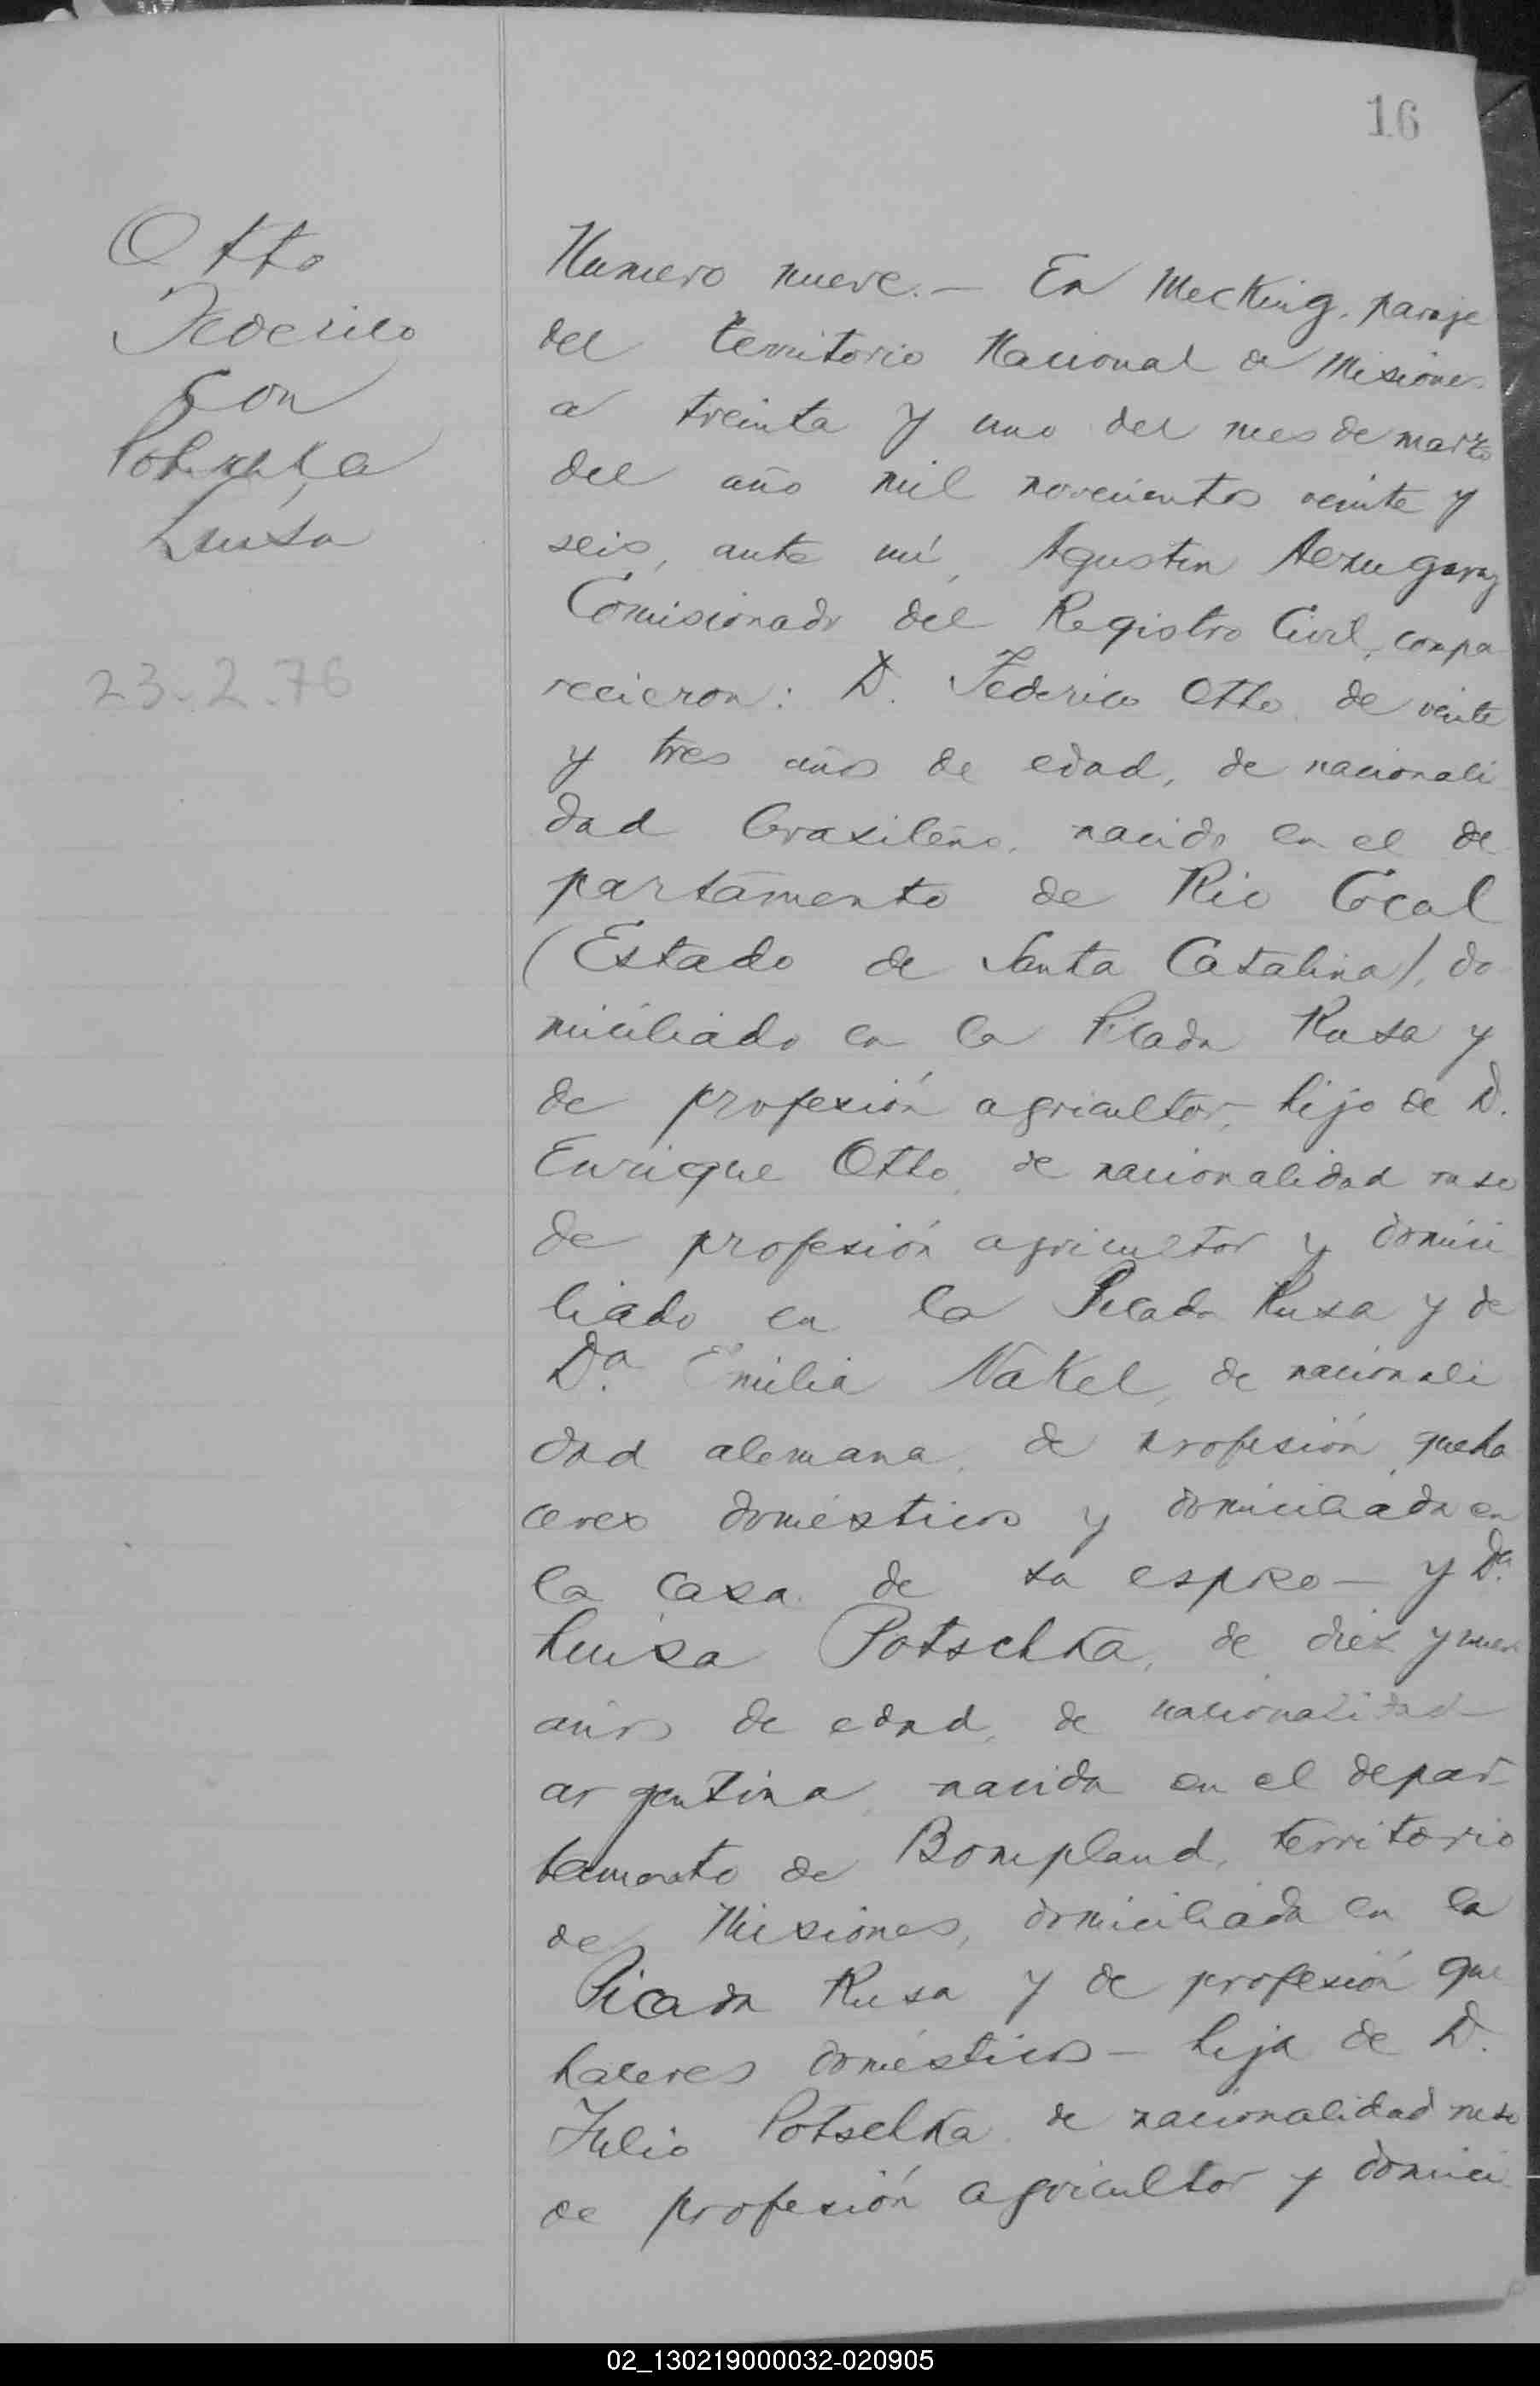 16
Otto
Federico
con
Luisa
23.2.76
Numero nueve.— En Mecking, paraje
del territorio Nacional de Misiones
a treinta y uno del mes de marzo
del año mil novecientos veinte y
seis, ante mí, Agustin
Comisionado del Registro Civil, compa
recieron: D. Federico Otto, de veinte
y tres años de edad, de nacionali
dad brasileño, nacido en el de
partamento de Rio Cocal
(Estado de Santa Catalina), do
miciliado en la Picada Rusa y
de profesión agricultor, hijo de D.
Enrique Otto, de nacionalidad ruso
de profesión agricultor y domici
liado en la Picada Rusa y de
Da. Emilia Nakel, de nacionali
dad alemana, de profesión queha
ceres domésticos y domiciliada en
la casa de su esposo — y Da.
Luisa Potschka, de diez y nueve
años de edad, de nacionalidad
argentina, nacida en el depar
tamento de Bompland, territorio
de Misiones, domiciliada en la
Picada Rusa y de profesión que
haceres domésticos — hija de D.
Julio Potschka de nacionalidad ruso
de profesión agricultor y domici
02_130219000032-020905